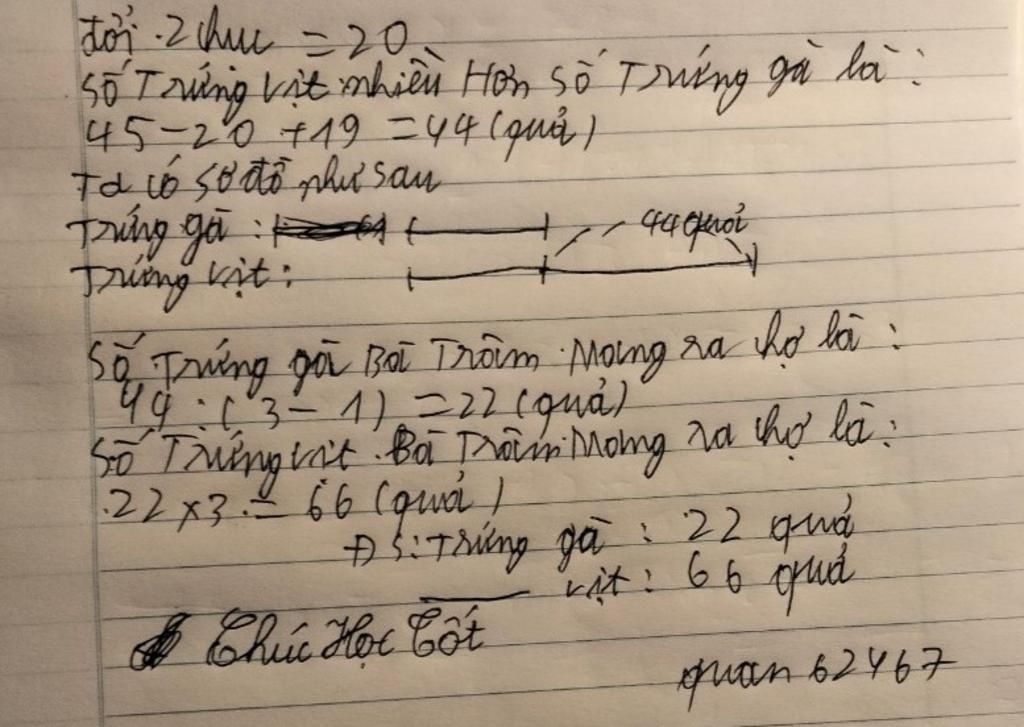 đổi. 2 chục = 20
Số Trứng vịt nhiều Hơn Số Trứng gà là:
45 - 20 + 19 = 44 (quả)
Ta có sơ đồ như sau
Trứng gà: 44 quả
Trứng vịt:
Số Trứng gà Bà Trâm Mang ra chợ là:
44 : (3 - 1) = 22 (quả)
Số Trứng vịt Bà Trâm Mang ra chợ là:
22 x 3 = 66 (quả)
ĐS: Trứng gà: 22 quả
vịt: 66 quả
Chúc Học Tốt
quan 62467